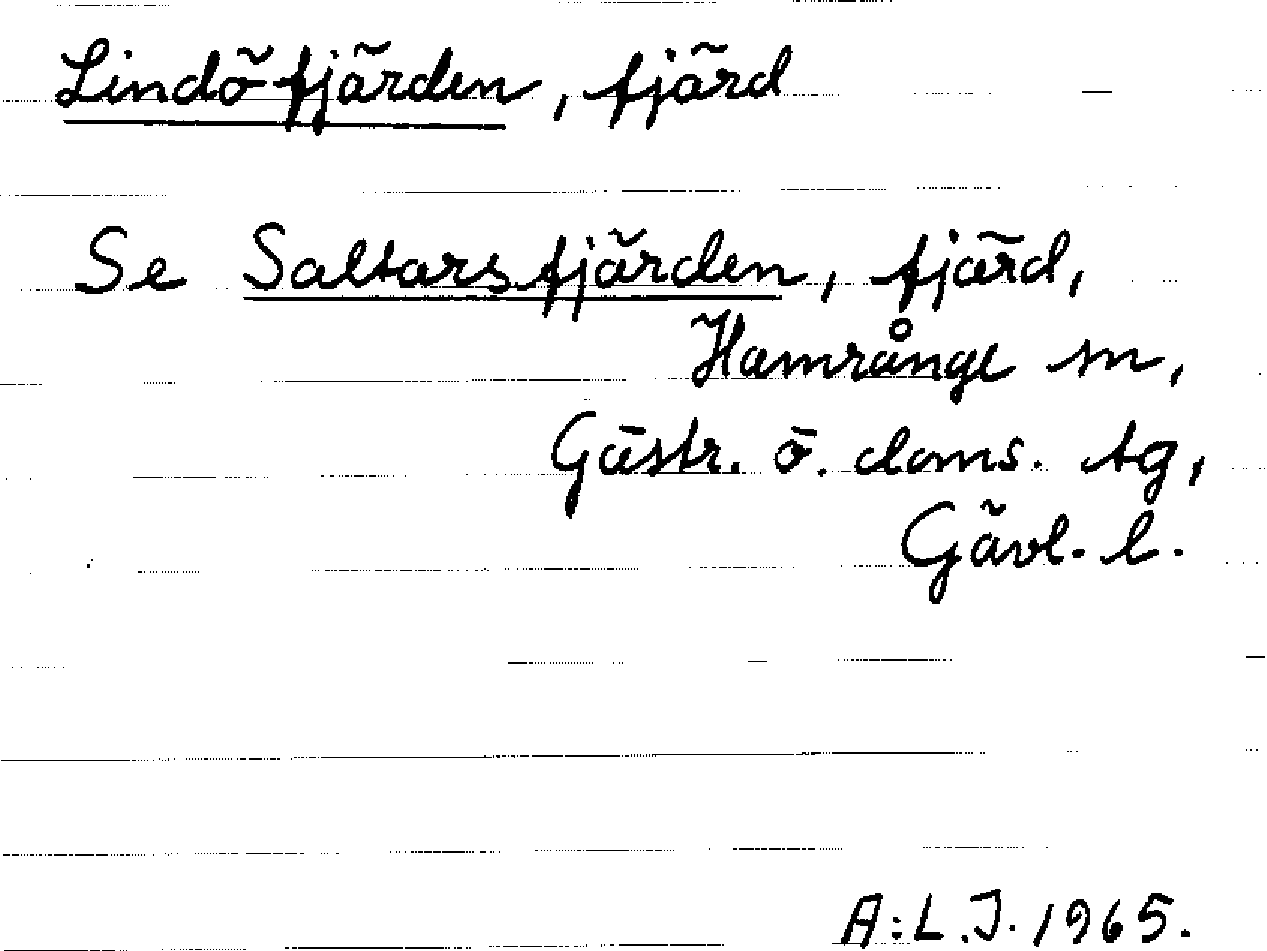 Lindöfjärden, fjärd
Se Saltarsfjärden, fjärd,
Hamrånge sn,
Gästr. ö. doms. tg,
Gävl. l.
A:L.J. 1965.